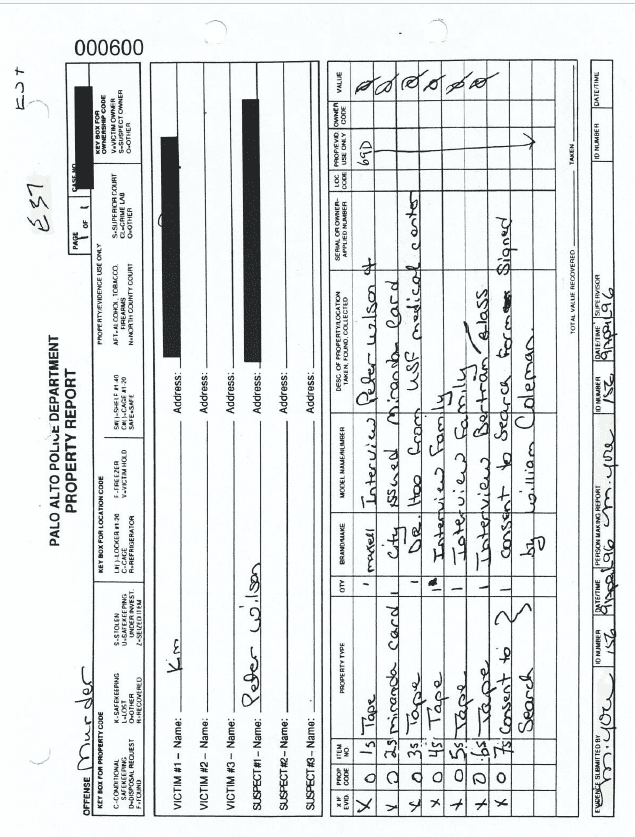 000600
E37
PALO ALTO POLICE DEPARTMENT
PROPERTY REPORT
OFFENSE Murder
PAGE 1 OF 1
CASE NO.
KEY BOX FOR PROPERTY CODE
C=CONDITIONAL SAFEKEEPING
D=DISPOSAL REQUEST
F=FOUND
K=SAFEKEEPING
L=LOST
O=OTHER
R=RECOVERED
S=STOLEN
U=SAFEKEEPING UNDER INVEST.
Z=SEIZED ITEM
KEY BOX FOR LOCATION CODE
L#( )-LOCKER #1-30
C=CAGE
R=REFRIGERATOR
F=FREEZER
V=VICTIM HOLD
S#( )-SHELF #1-40
C#( )-CAGE #1-20
SAFE=SAFE
PROPERTY/EVIDENCE USE ONLY
AFT=ALCOHOL, TOBACCO, FIREARMS
N=NORTH COUNTY COURT
S=SUPERIOR COURT
CL=CRIME LAB
O=OTHER
KEY BOX FOR OWNERSHIP CODE
V=VICTIM OWNER
S=SUSPECT OWNER
O=OTHER
VICTIM #1 – Name: Kim Address:
VICTIM #2 – Name: Address:
VICTIM #3 – Name: Address:
SUSPECT #1 – Name: Peter Wilson Address:
SUSPECT #2 – Name: Address:
SUSPECT #3 – Name: Address:
X IF EVID. PROP CODE ITEM NO. PROPERTY TYPE QTY BRAND/MAKE MODEL NAME/NUMBER DESC. OF PROPERTY/LOCATION TAKEN, FOUND, COLLECTED SERIAL OR OWNER-APPLIED NUMBER LOC CODE PROP/EVID USE ONLY OWNER CODE VALUE
X O 1s Tape 1 maxell Interview Peter Wilson 69D Ø
X O 2s miranda card 1 City issued Miranda Card Ø
X O 3s Tape 1 DR. Hoo from USF medical center Ø
X O 4s Tape 1 Interview Family Ø
X O 5s Tape 1 Interview Family Ø
X O 6s Tape 1 Interview Bertran Glass Ø
X O 7s Consent to Search 1 Consent to Search Form Signed
by William Coleman.
TOTAL VALUE RECOVERED TAKEN
EVIDENCE SUBMITTED BY M. Yore ID NUMBER 156 DATE/TIME 9Apr96 PERSON MAKING REPORT M. Yore ID NUMBER 156 DATE/TIME 9Apr96 SUPERVISOR ID NUMBER DATE/TIME